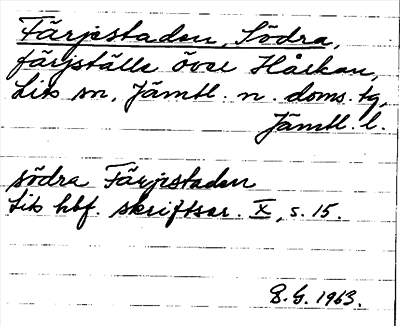 Färjestaden, Södra,
färjställe över Hårkan,
Lits sn, Jämtl. n. doms. tg,
Jämtl. l.
södra Färjestaden
Lits hbf. skriftser. X, s. 15.
G.G. 1963.